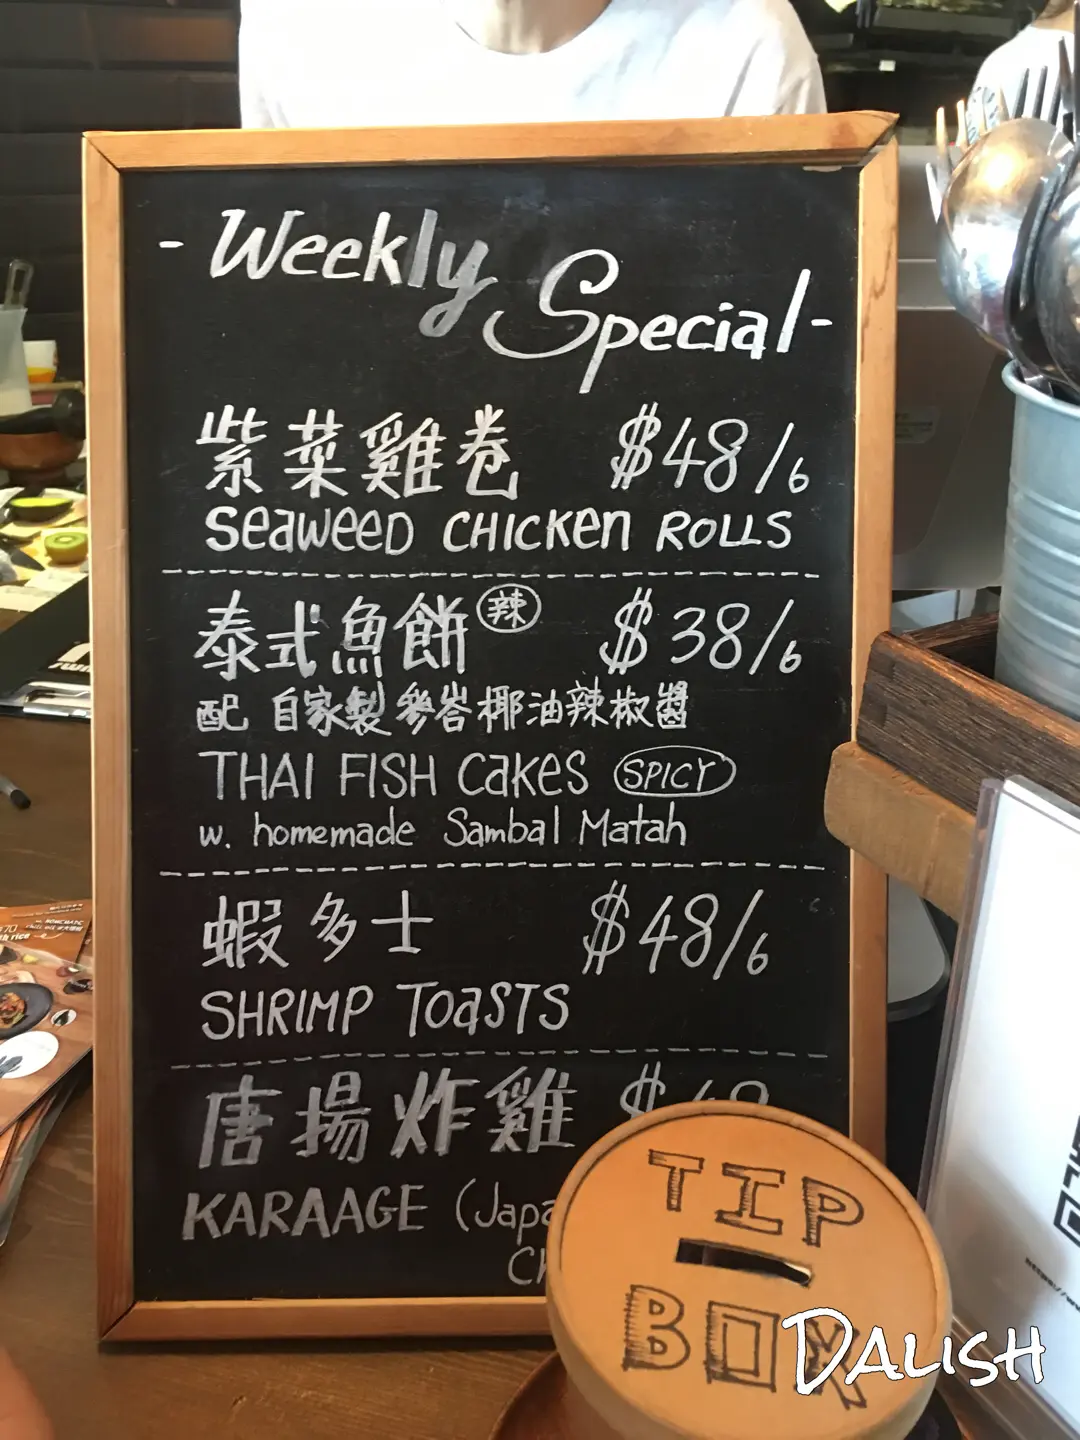 - Weekly Special -
紫菜雞卷 $48/6
SEAWEED CHICKEN ROLLS
泰式魚餅 辣 $38/6
配 自家製參峇椰油辣椒醬
THAI FISH CAKES SPICY
w. homemade Sambal Matah
蝦多士 $48/6
SHRIMP TOASTS
唐揚炸雞 $48
KARAAGE (Japa
Ch
TIP
BOX
DALISH